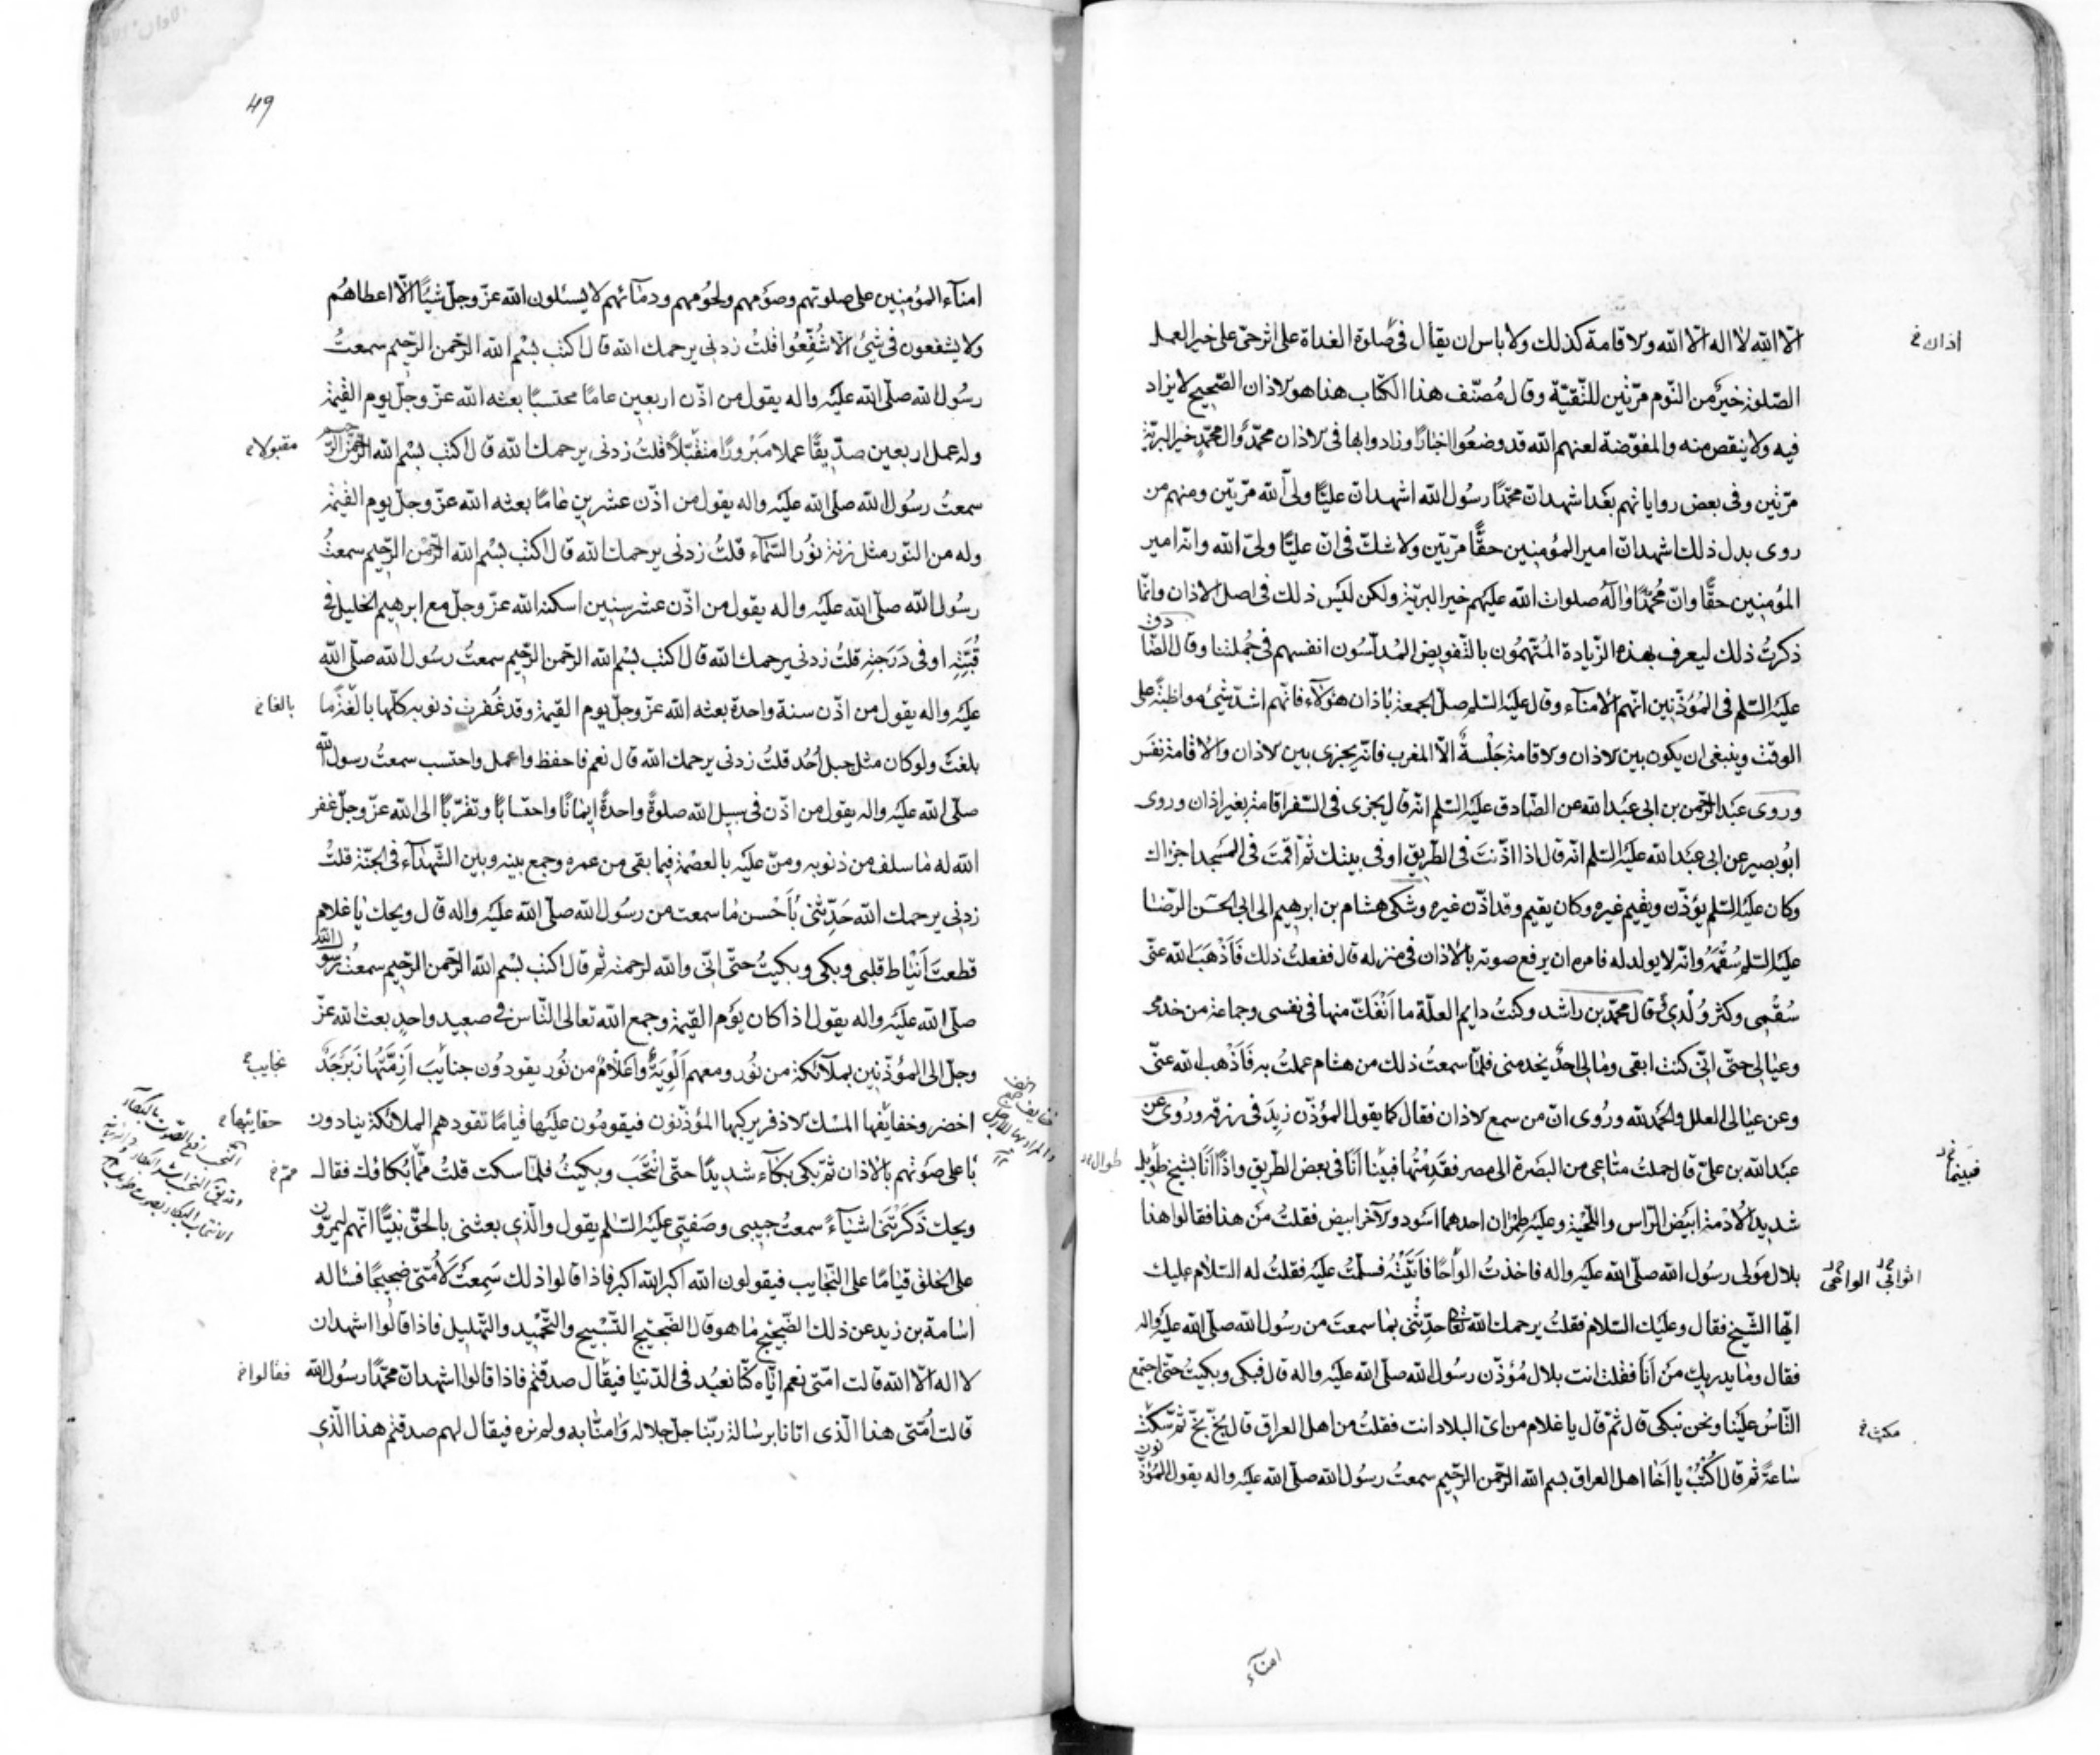 الّا الله لا اله الّا الله والاقامة كذلك ولا باس ان يقال فى صلوة الغداة على اثر حىّ على خير العمل
الصّلوة خيرٌ من النّوم مرّتين للتّقيّة وقال مُصنّف هذا الكتاب هذا هو الاذان الصّحيح لا يزاد
فيه ولا ينقص منه والمفوّضة لعنهم الله قد وضعُوا اخبارًا وزادوا بها فى الاذان محمّدٌ وال محمّدٍ خير البريّة
مرّتين وفى بعض رواياتهم بعَد اشهد انّ محمّدًا رسول الله اشهد انّ عليًّا ولىّ الله مرّتين ومنهم من
روى بدل ذلك اشهد انّ امير المؤمنين حقًّا مرّتين ولا شكّ فى انّ عليًّا ولىّ الله وانّه امير
المؤمنين حقًّا وانّ مُحمّدًا وآلهُ صلوات الله عليهم خير البريّة ولكن ليَس ذلك فى اصل الاذان وانّما
ذكرتُ ذلك ليعرف بهذه الزّيادة المُتّهمُون بالتّفويض المُدلّسُون انفسهم فى جُملتنا وقال الصّادق
عليَه السّلم فى المُؤذّنين انّهم الامنآء وقال عليَه السّلم صلّ الجمعة باذان هؤلآء فانّهم اشدّ شىء مواظبةً على
الوقت وينبغى ان يكون بين الاذان والاقامة جَلْسةٌ الّا المغرب فانّه يجزى بين الاذان والاقامة نفَس
وروى عبَد الرّحمن بن ابى عبَد الله عن الصّادق عليَه السّلم انّه قال يجزى فى السّفر اقامة بغير اذان وروى
ابُو بصير عن ابى عبَد الله عليَه السّلم انّه قال اذا اذّنتَ فى الطّريق او فى بيتك ثمّ اقمَتَ فى المسَجد اجزاك
وكان عليَه السّلم يؤذّن ويقيم غيره وكان يقيم وقد اذّن غيره وشكى هشام بن ابرهيم الى ابى الحسَن الرّضا
عليَه السّلم سُقْمَهُ وانّه لا يولد له فامره ان يرفع صوته بالاذان فى منزله قال ففعلتُ ذلك فَاَذْهَبَ الله عنّى
سُقْمى وكثر وُلْدى قال محمّد بن راشد وكنتُ دايم العلّة ما اَنْفَكّ منها فى نفسى وجماعة من خدمى
وعيالى حتّى انّى كنت ابقى وما لى احدٌ يخدمنى فلمّا سمعتُ ذلك من هشام عملتُ به فَاَذْهب الله عنّى
وعن عيالى العلل والحمَد لله ورُوى انّ من سمع الاذان فقال كما يقول المؤذّن زيدَ فى رزقه ورُوى عن
عبَد الله بن علىّ قال حملتُ متاعى من البصَرة الى مصر فقَدِمْتُها فبيَنا اَنَا فى بعض الطّريق واذًا اَنَا بشيخ طوٖيل
شديد الاُدْمة ابيَض الرّاس واللّحيْة وعليَه طِمْرٰان احدهما اسَود والآخر ابيض فقلتُ مَن هذا فقالوا هذا
بلال مَولى رسُول الله صلّى الله عليَه واله فاخذتُ الواحًا فَاَتَيْتُهُ فسلّمتُ عليَه فقلتُ له السّلام عليك
ايّها الشّيخ فقال وعليَك السّلام فقلتُ يرحمك الله تعالى حدّثْنى بما سمعتَ من رسُول الله صلّى الله عليَه واله
فقال وما يدريك مَن اَنَا فقلت انت بلال مُؤذّن رسُول الله صلّى الله عليَه واله قال فبكى وبكيتُ حتّى اجتمع
النّاسُ عليَنا ونحن نبكى قال ثمّ قال يا غلام من اىّ البلاد انت فقلتُ من اهل العراق قال بخّ بخّ ثمّ سكت
ساعةً ثم قال اُكْتُبْ يا اَخا اهل العراق بسم الله الرّحمن الرّحيم سمعتُ رسُول الله صلّى الله عليَه واله يقول المُؤذّنون
اذان خ
فبَينما
طوال
اثوابى الواحى
مكث خ
امنآء
49
امنآء المؤمنين على صلوتهم وصوَمهم ولحُومهم ودمآئهم لا يسئلون الله عزّ وجلّ شيئًا الّا اعطاهُم
ولا يشفعون فى شىء الّا شُفِّعُوا قلتُ زدنى يرحمك الله قال اكتب بسْم الله الرّحمن الرّحيم سمعتُ
رسُول الله صلّى الله عليَه واله يقول من اذّن اربعين عامًا محتسبًا بعثه الله عزّ وجلّ يوم القيمة
وله عمل اربعين صدّيقًا عملا مَبْرورًا متقبّلًا قلتُ زدنى يرحمك الله قال اكتب بسْم الله الرّحمن الرّحيم
سمعتُ رسُول الله صلّى الله عليَه واله يقول من اذّن عشرين عامًا بعثه الله عزّ وجلّ يوم القيمة
وله من النّور مثل زنة نوُر السّمآء قلتُ زدنى يرحمك الله قال اكتب بسْم الله الرّحمْن الرّحيم سمعتُ
رسُول الله صلّى الله عليَه واله يقول من اذّن عشر سنين اسكنه الله عزّ وجلّ مع ابرهيم الخليل فى
قُبّتِه او فى دَرَجتِه قلتُ زدنى يرحمك الله قال اكتب بسْم الله الرّحمن الرّحيم سمعتُ رسُول الله صلّى الله
عليَه واله يقول من اذّن سنة واحدة بعثه الله عزّ وجلّ يوم القيمة وقد غُفرت ذنوبه كلّها بالغةً ما
بلغتَ ولو كان مثل جبل اُحُد قلتُ زدنى يرحمك الله قال نعم فاحفظ واعمل واحتسب سمعتُ رسول الله
صلّى الله عليَه واله يقول من اذّن فى سبيل الله صلوةً واحدةً ايمانًا واحتسابًا وتقرّبًا الى الله عزّ وجلّ غفر
الله له ما سلف من ذنوبه ومنّ عليَه بالعصْمة فيما بقى من عمره وجمع بينه وبين الشّهدآء فى الجنّة قلتُ
زدنى يرحمك الله حَدّثنى بأَحْسن ما سمعت من رسُول الله صلّى الله عليَه واله قال ويحك يا غلام
قطعتَ اَنْيٰاط قلبى وبكى وبكيتُ حتّى انّى والله لرحمته ثمّ قال اكتب بسْم الله الرّحمن الرّحيم سمعتُ رسُول الله
صلّى الله عليَه واله يقول اذا كان يوَم القيمة وجمع الله تعالى النّاس فى صعيد واحدٍ بعث الله عزّ
وجلّ الى المؤذّنين بملآئكة من نُور ومعهم اَلْوِيَةٌ واَعْلٰامٌ من نُور يقودوُن جنايبَ اَزِمَّتُها زَبَرْجَدٌ
اخضر وخفايفها المسْك الاذفر يركبها المؤذّنون فيقومُون عليَها قيامًا تقودهم الملائكة ينادون
باعلى صوَتهم بالاذان ثمّ بكى بكآء شديدًا حتّى انْتَحَبَ وبكيتُ فلمّا سكت قلتُ ممّا بُكاؤك فقال
ويحك ذَكّرْتَنى اشيآءً سمعتُ حبيبى وصَفيّى عليَه السّلم يقول والّذى بعثنى بالحقّ نبيًّا انّهم ليمرّون
على الخلق قيامًا على النّجايب فيقولون الله اكبر الله اكبر فاذا قالوا ذلك سَمِعتُ لاُمّتى ضجيجًا فساله
اسامة بن زيد عن ذلك الضّجيج ما هو قال الضّجيج التّسْبيح والتّحْميد والتّهليل فاذا قالوا اشهد ان
لا اله الّا الله قالت امّتى نعم ايّاه كنّا نعبُد فى الدّنيا فيقال صدقتم فاذا قالوا اشهد انّ محمّدًا رسُول الله
قالت اُمّتى هذا الّذى اتانا برسالة ربّنا جلّ جلاله وَامنّا به ولم نره فيقال لهم صدقتم هذا الّذى
مقبولا خ
بالغا خ
نجايب خ
حقايبها خ
ممّ خ
فقالوا خ